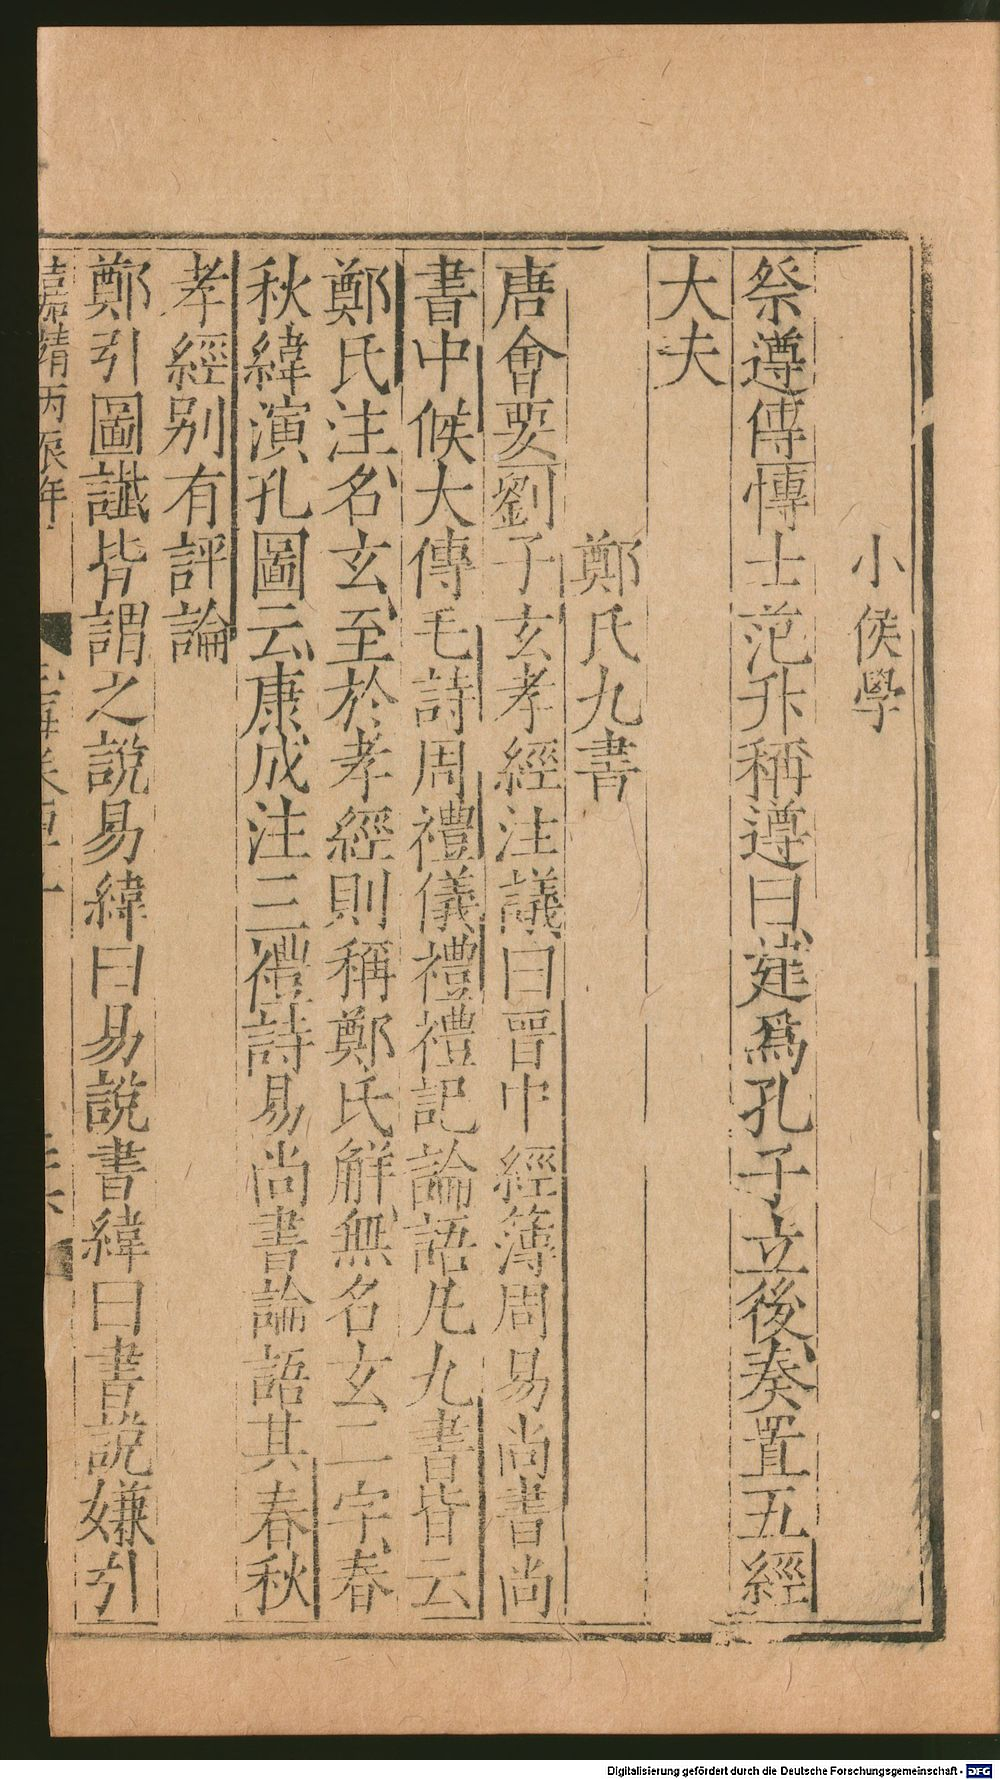 小侯學
祭遵傳愽士范升稱遵曰建爲孔子立後奏置五經
大夫
鄭氏九書
唐會要劉子玄孝經注議曰晋中經簿周易尚書尚
書中候大傳毛詩周禮儀禮禮記論語凡九書皆云
鄭氏注名玄至於孝經則稱鄭氏解無名玄二字春
秋緯演孔圖云康成注三禮詩易尚書論語其春秋
孝經別有評論
鄭引圖讖皆謂之說易緯曰易說書緯曰書說嫌引
嘉靖丙辰年
Digitalisierung gefördert durch die Deutsche Forschungsgemeinschaft - DFG